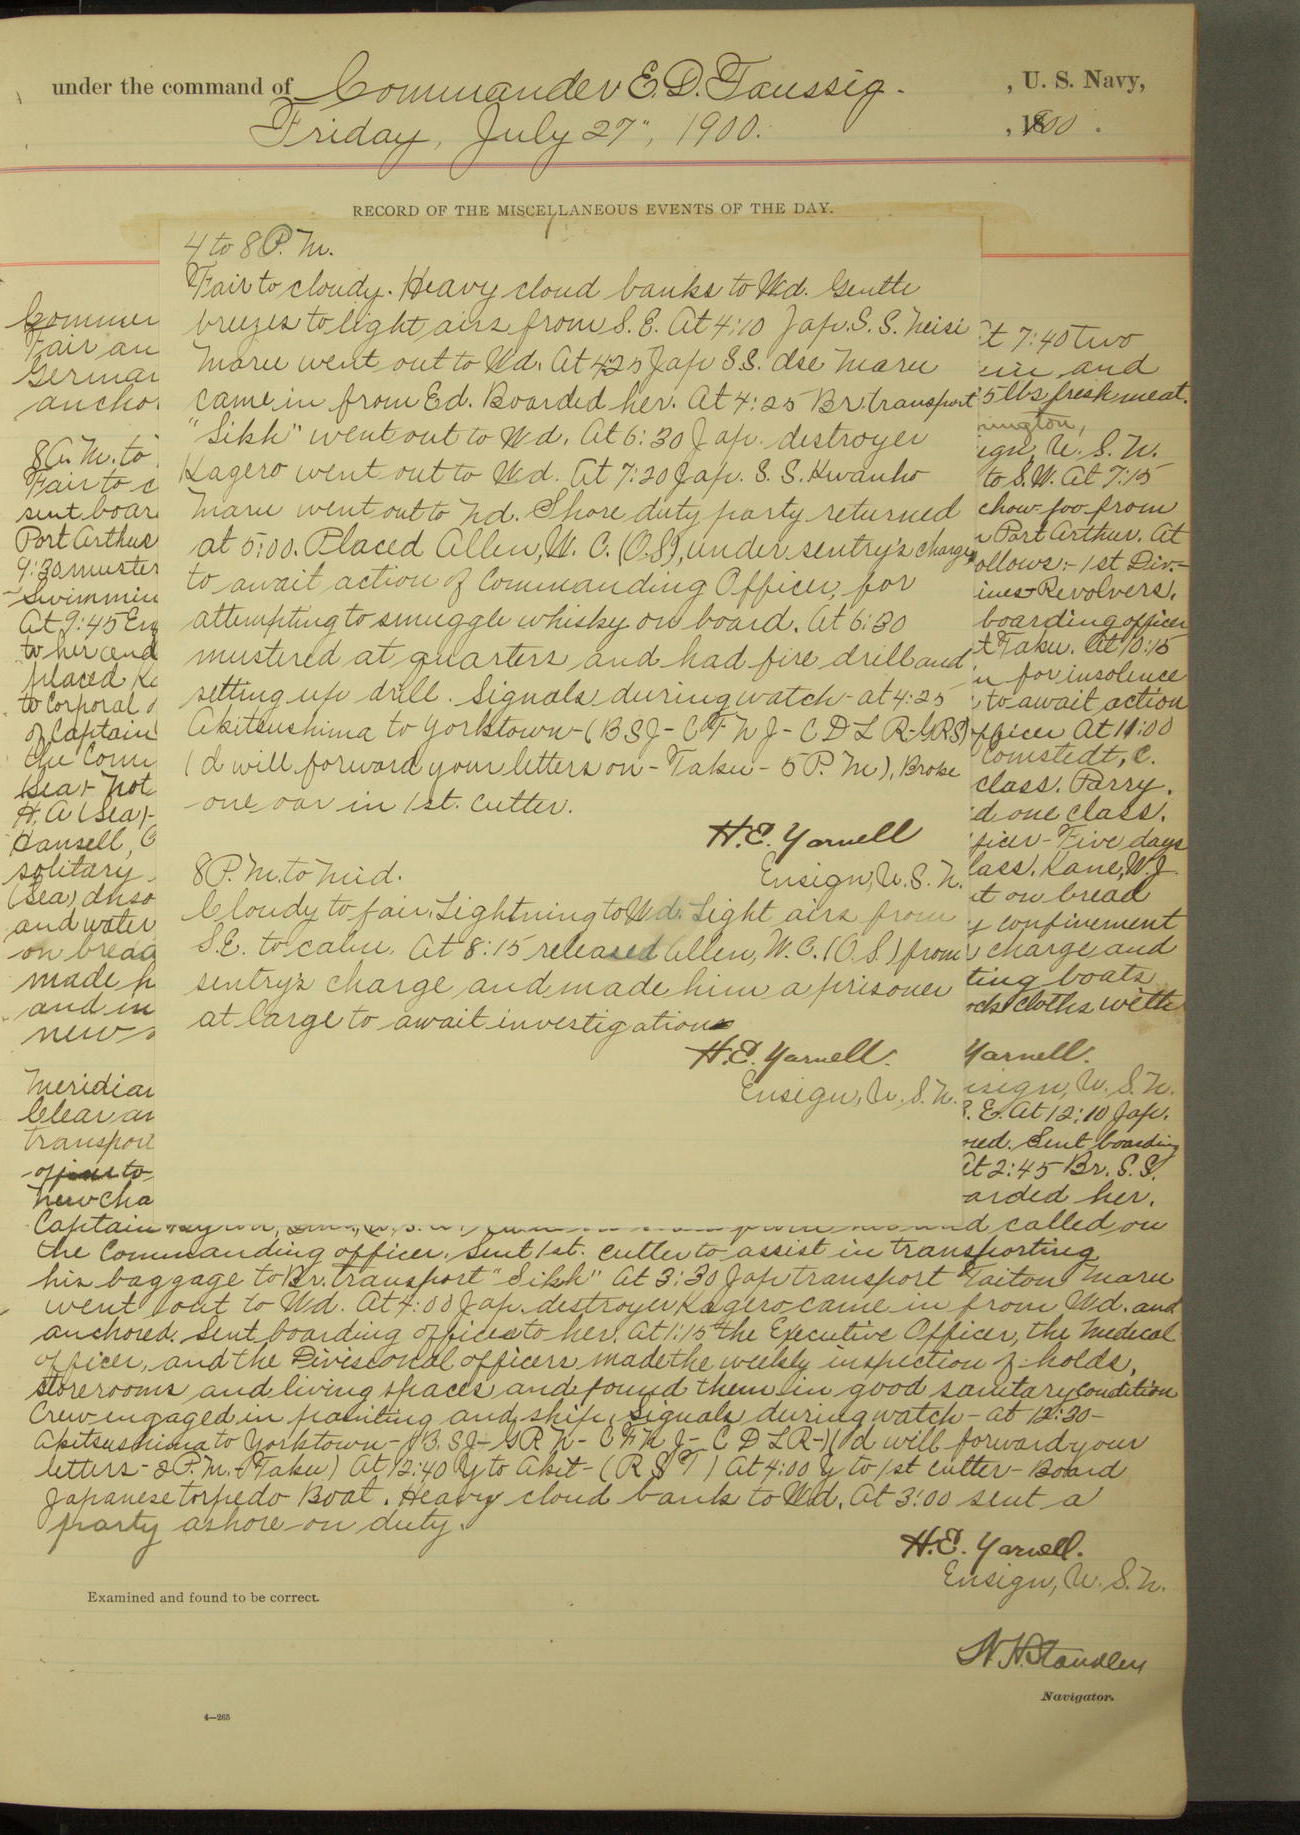 under the command of Commander E. D. Taussig. , U. S. Navy,
Friday, July 27", 1900. , 1900.
RECORD OF THE MISCELLANEOUS EVENTS OF THE DAY.
4 to 8 P. M.
Fair to cloudy. Heavy cloud banks to Wd. Gentle
breezes to light airs from S. E. At 4:10 Jap. S. S. Meisi
Maru went out to Wd. At 4:25 Jap S S. Ise Maru
came in from Ed. Boarded her. At 4:25 Br. transport
"Sikh" went out to Wd. At 6:30 Jap. destroyer
Kagero went out to Wd. At 7:20 Jap. S. S. Kwanho
Maru went out to Nd. Shore duty party returned
at 5:00. Placed Allen, W. C. (O.S), under sentry's charge
to await action of Commanding Officer, for
attempting to smuggle whisky on board. At 6:30
mustered at quarters and had fire drill and
setting up drill. Signals during watch - at 4:25
Akitsushima to Yorktown - (B S J - C F N J - C D L R - G R S)
(I'd will forward your letters on - Taku - 5 P. M.). Broke
one oar in 1st. cutter.
H. E. Yarnell
Ensign, U. S. N.
8 P. M. to Mid.
Cloudy to fair. Lightning to Wd. Light airs from
S. E. to calm. At 8:15 released Allen, W. C. (O. S.) from
sentry's charge and made him a prisoner
at large to await investigation
H. E. Yarnell.
Ensign, U. S. N.
Fair an
German
anchor
8 A. M. to
Fair to c
sent board
Port Arthur
9:30 muster
Swimmin
At 9:45 En
to her and
placed Ka
to Corporal o
of Captain
the Comm
(Sea) - Not
H. A (Sea) -
Hansell, C
solitary
(Sea), diso
and water
on bread
made h
and in
new
Meridian
Clear an
transport
new cha
At 7:40 two
and
5 lbs fresh meat.
nington,
ign, U. S. N.
to S. W. At 7:15
chow-foo from
Port Arthur. At
ollows: - 1st Div. -
ines - Revolvers.
boarding officer
t Taku. At 10:15
for insolence
to await action
officer At 11:00
Comstedt, C.
class. Parry.
d one class.
ficer - Five days
lass. Kane, W. J.
t on bread
y confinement
charge and
ting boats
ock cloths with
Yarnell.
nsign, U. S. N.
S. E. At 12:10 Jap.
ored. Sent boarding
At 2:45 Br. S. S.
arded her.
Captain d called on
the Commanding officer. Sent 1st. cutter to assist in transporting
his baggage to Br. transport "Sikh" At 3:30 Jap transport Taiton Maru
went out to Wd. At 4:00 Jap. destroyer Kagero came in from Wd. and
anchored. Sent boarding officer to her. At 1:15 the Executive Officer, the Medical
officer, and the Divisional officers made the weekly inspection of holds,
storerooms and living spaces and found them in good sanitary condition
Crew engaged in painting and ship. Signals during watch - at 12:30 -
Akitsushima to Yorktown - (B. S J - G R N - C F N J - C D L R -) (I'd will forward your
letters - 2 P. M. - Taku) At 12:40 Y to Akit - (R S T) At 4:00 Y to 1st cutter - Board
Japanese torpedo Boat. Heavy cloud bank to Wd. At 3:00 sent a
party ashore on duty.
H. E. Yarnell.
Ensign, U. S. N.
Examined and found to be correct.
W H Standley
Navigator.
4—265